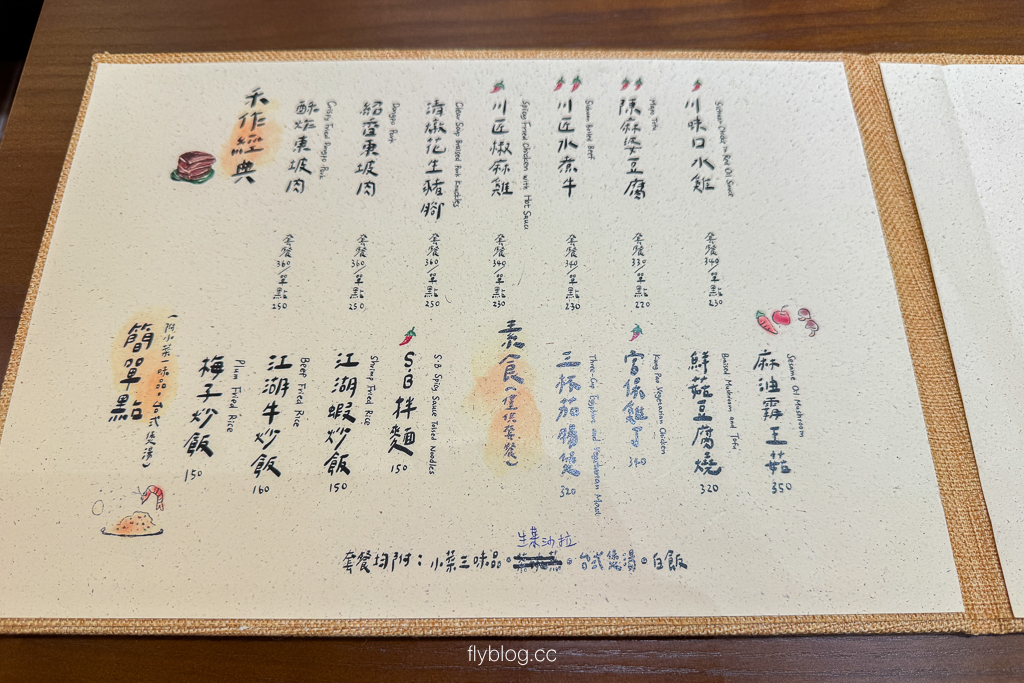 禾作經典
酥炸東坡肉
Crispy Fried Dongpo Pork
套餐360/單點250
紹香東坡肉
Dongpo Pork
套餐360/單點250
清燉花生豬腳
Clear Soup Braised Pork Knuckles
套餐360/單點250
川匠椒麻雞
Spicy Fried Chicken with Hot Sauce
套餐340/單點230
川匠水煮牛
Sichuan Boiled Beef
套餐340/單點230
陳麻婆豆腐
Mapo Tofu
套餐330/單點220
川味口水雞
Sichuan Chicken in Red Oil Sauce
套餐340/單點230
簡單點
(附小菜一味品。台式煲湯)
梅子炒飯 150
Plum Fried Rice
江湖牛炒飯 160
Beef Fried Rice
江湖蝦炒飯 150
Shrimp Fried Rice
S.B拌麵 150
S.B Spicy Sauce Tossed Noodles
素食(僅供套餐)
三杯茄腸煲 320
Three-Cup Eggplant and Vegetarian Meat
宮保雞 340
Kung Pao Vegetarian Chicken
鮮菇豆腐燒 320
Braised Mushroom and Tofu
麻油霸王菇 350
Sesame Oil Mushroom
生菜沙拉
套餐均附：小菜三味品。台式煲湯。白飯
flyblog.cc